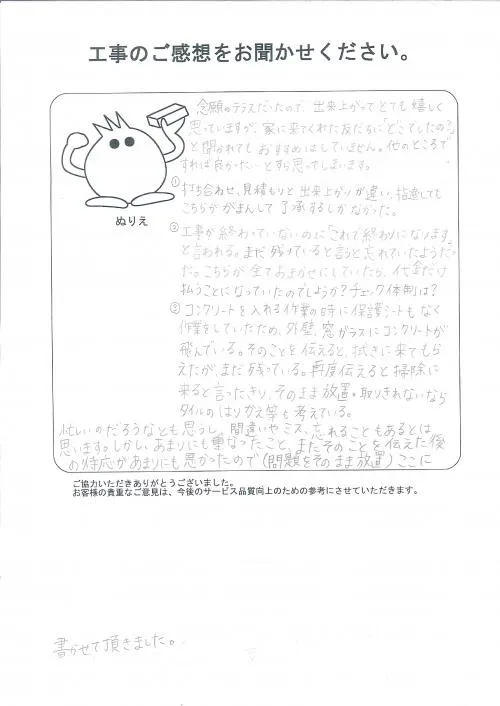 工事のご感想をお聞かせください。
念願のテラスだったので、出来上がってとても嬉しく
思っていますが、家に来てくれた友だちに「どこでしたの?」
と聞かれてもおすすめはしていません。他のところで
すれば良かった…とすら思ってしまいます。
①打ち合わせ、見積もりと出来上がりが違い、指摘しても
こちらががまんして了承するしかなかった。
ぬりえ
②工事が終わっていないのに「これで終わりになります」
と言われる。まだ残っていると言うと忘れていたようだっ
た。こちらが全ておまかせにしていたら、代金だけ
払うことになっていたのでしょうか?チェック体制は?
③コンクリートを入れる作業の時に保護シートもなく
作業をしていたため、外壁、窓ガラスにコンクリートが
飛んでいる。そのことを伝えると、拭きに来てもら
えたが、まだ残っている。再度伝えると掃除に
来ると言ったきり、そのまま放置。取りきれないなら
タイルのはりかえ等も考えている。
忙しいのだろうなとも思うし、間違いやミス、忘れることもあるとは
思います。しかし、あまりにも重なったこと、またそのことを伝えた後
の対応があまりにも悪かったので(問題をそのまま放置)ここに
ご協力いただきありがとうございました。
お客様の貴重なご意見は、今後のサービス品質向上のための参考にさせていただきます。
書かせて頂きました。